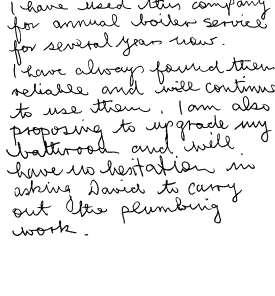 I have used this company
for annual boiler service
for several years now.
I have always found them
reliable and will continue
to use them. I am also
proposing to upgrade my
bathroom and will
have no hesitation in
asking David to carry
out the plumbing
work.